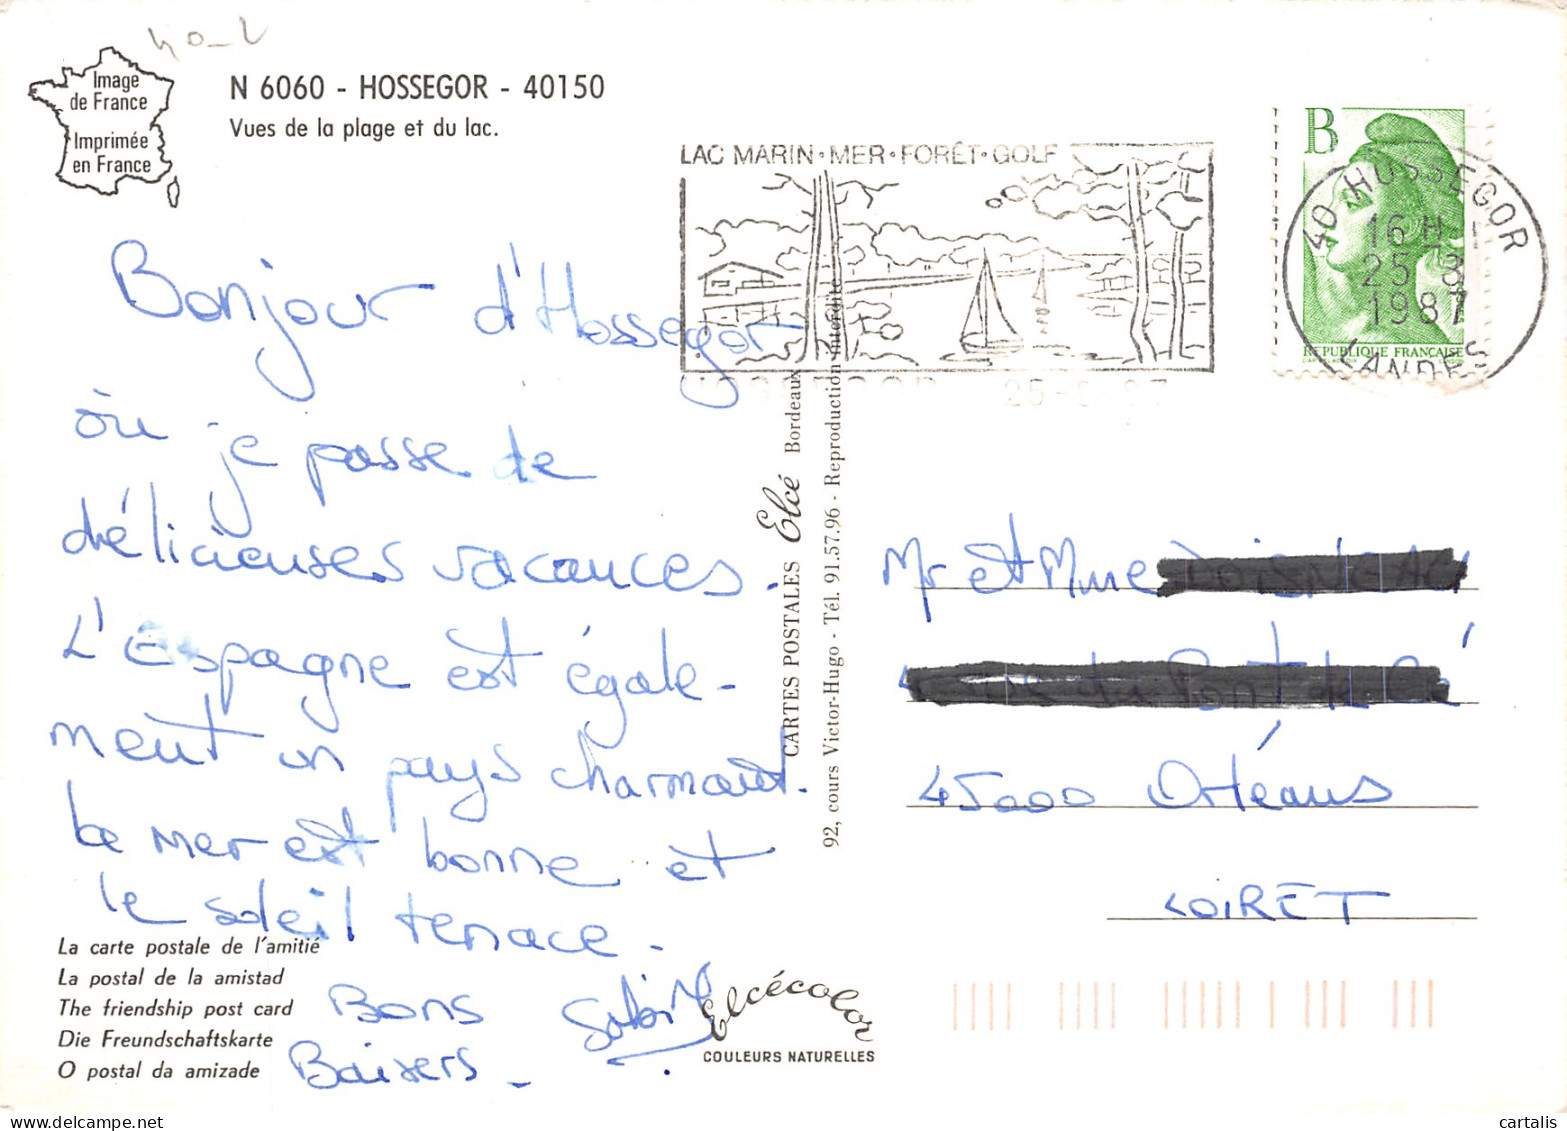 40-L
Image
de France
Imprimée
en France
N 6060 - HOSSEGOR - 40150
Vues de la plage et du lac.
LAC MARIN•MER•FORÊT•GOLF
B
RÉPUBLIQUE FRANÇAISE
40 HOSSEGOR
16 H
25 3
1987
LANDES
Bonjour d'Hossegor
où je passe de
délicieuses vacances.
L'Espagne est égale-
ment un pays charmant.
La mer est bonne et
le soleil tenace.
Bons
Baisers.
La carte postale de l'amitié
La postal de la amistad
The friendship post card
Die Freundschaftskarte
O postal da amizade
CARTES POSTALES Elcé Bordeaux
92, cours Victor-Hugo - Tél. 91.57.96 - Reproduction interdite
Elcécolor
COULEURS NATURELLES
Mr et Mme
45000 Orléans
LOIRET
cartalis